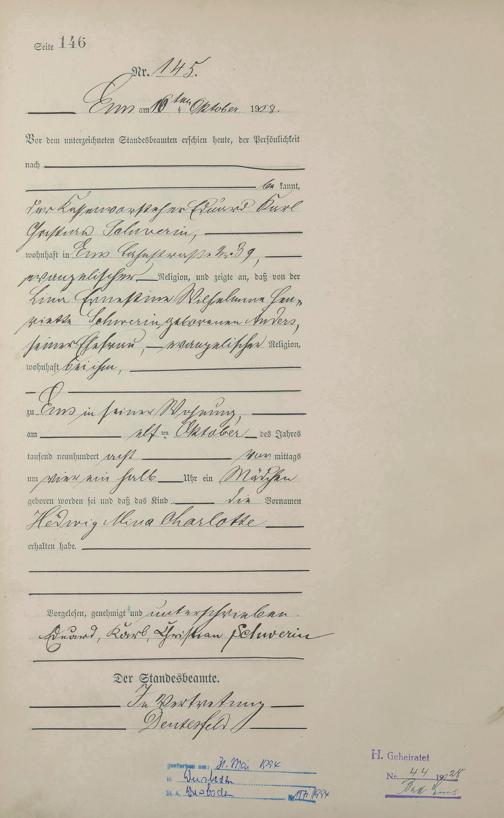 Seite 146
Nr. 145.
Ems am 16ten Oktober 1908.
Vor dem unterzeichneten Standesbeamten erschien heute, der Persönlichkeit
nach
be kannt,
der Kassenvorsteher Eduard Karl
Christian Schwerin,
wohnhaft in Ems Lahnstraße Nr. 39,
evangelischer Religion, und zeigte an, daß von der
Lina Ernestine Wilhelmine Hen-
riette Schwerin geborenen Anders,
seiner Ehefrau, evangelischer Religion,
wohnhaft bei ihm,
zu Ems in seiner Wohnung,
am elf ten Oktober des Jahres
tausend neunhundert acht vor mittags
um vier ein halb Uhr ein Mädchen
geboren worden sei und daß das Kind die Vornamen
Hedwig Mina Charlotte
erhalten habe.
Vorgelesen, genehmigt und unterschrieben.
Eduard, Karl, Christian Schwerin
Der Standesbeamte.
In Vertretung
gestorben am: 31. Mai 1994
in Wiesbaden
St. A. Wiesbaden Nr.
H. Geheiratet
Nr. 44 1928
Ems